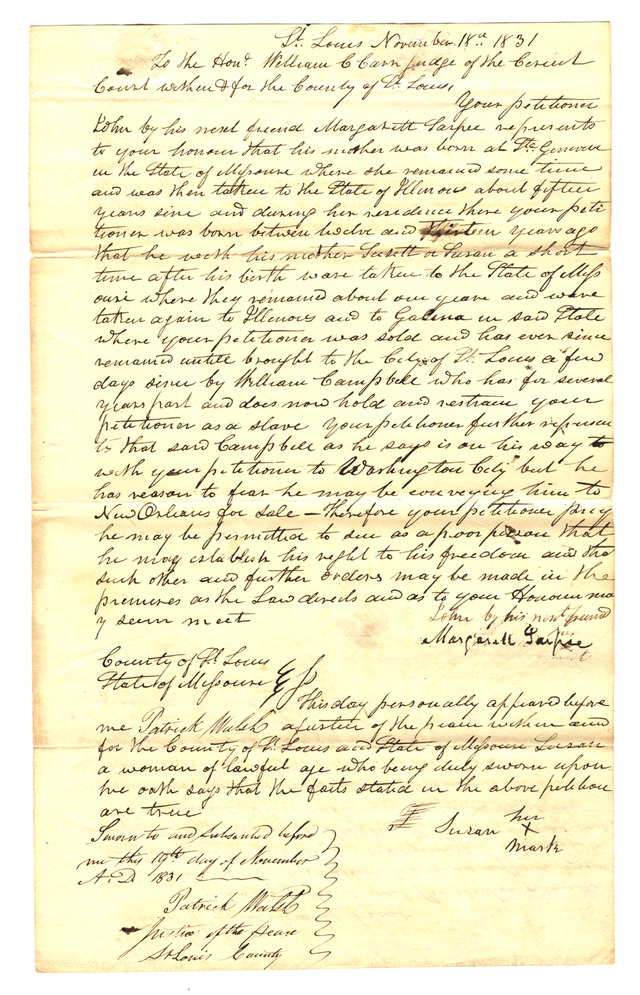 St. Louis November 18th 1831
To the Honl. William C Carr judge of the Circuit
Court within & for the County of St. Louis,
Your petitioner
John by his next friend Margarett Sarpee represents
to your honour that his mother was born at Ste. Genevieve
in the State of Missouri where she remained some time
and was then taken to the State of Illinois about fifteen
years sinc and during her residence there your peti
tioner was born between twelve and thirteen years ago
that he with his mother Susett or Susan a short
time after his birth ware taken to the State of Miss
ouri where they remained about one year and were
taken again to Illinois and to Galena in said State
where your petitioner was sold and has ever since
remained untill brought to the City of St. Louis a few
days since by William Campbell who has for several
years part and does now hold and restrain your
petitioner as a slave Your petitioner further represen
ts that said Campbell as he says is on his way to
with your petitioner to Washington City but he
has reason to fear he may be conveying him to
New Orleans for sale — therefore your petitioner pray
he may be permitted to sue as a poor person that
he may establish his right to his freedom and that
such other and further orders may be made in the
premises as the Law directs and as to your Honour ma
y seem meet
John by his next friend
Margarett Sarpee
County of St Louis
State of Missouri
This day personally appeared before
me Patrick Walsh a justice of the peace within and
for the County of St. Louis and State of Missouri Susan
a woman of lawful age who being duly sworn upon
her oath says that the facts stated in the above petition
are true
Susan her
X
mark
Sworn to and subscribed before
me this 19th day of November
A.D. 1831
Patrick Walsh
Justice of the Peace
St Louis County